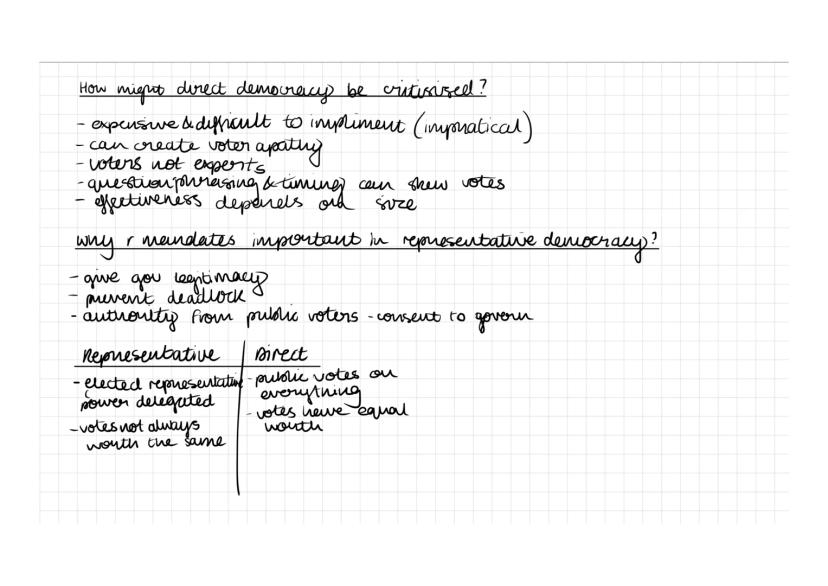 How might direct democracy be critisised?
- expensive & difficult to impliment (impratical)
- can create voter apathy
- voters not experts
- question phrasing & timing can skew votes
- effectiveness depends on size
why r mandates important in representative democracy?
- give gov legitimacy
- prevent deadlock
- authority from public voters - consent to govern
Representative
- elected representative
power delegated
- votes not always
worth the same
Direct
- public votes on
everything
- votes have equal
worth